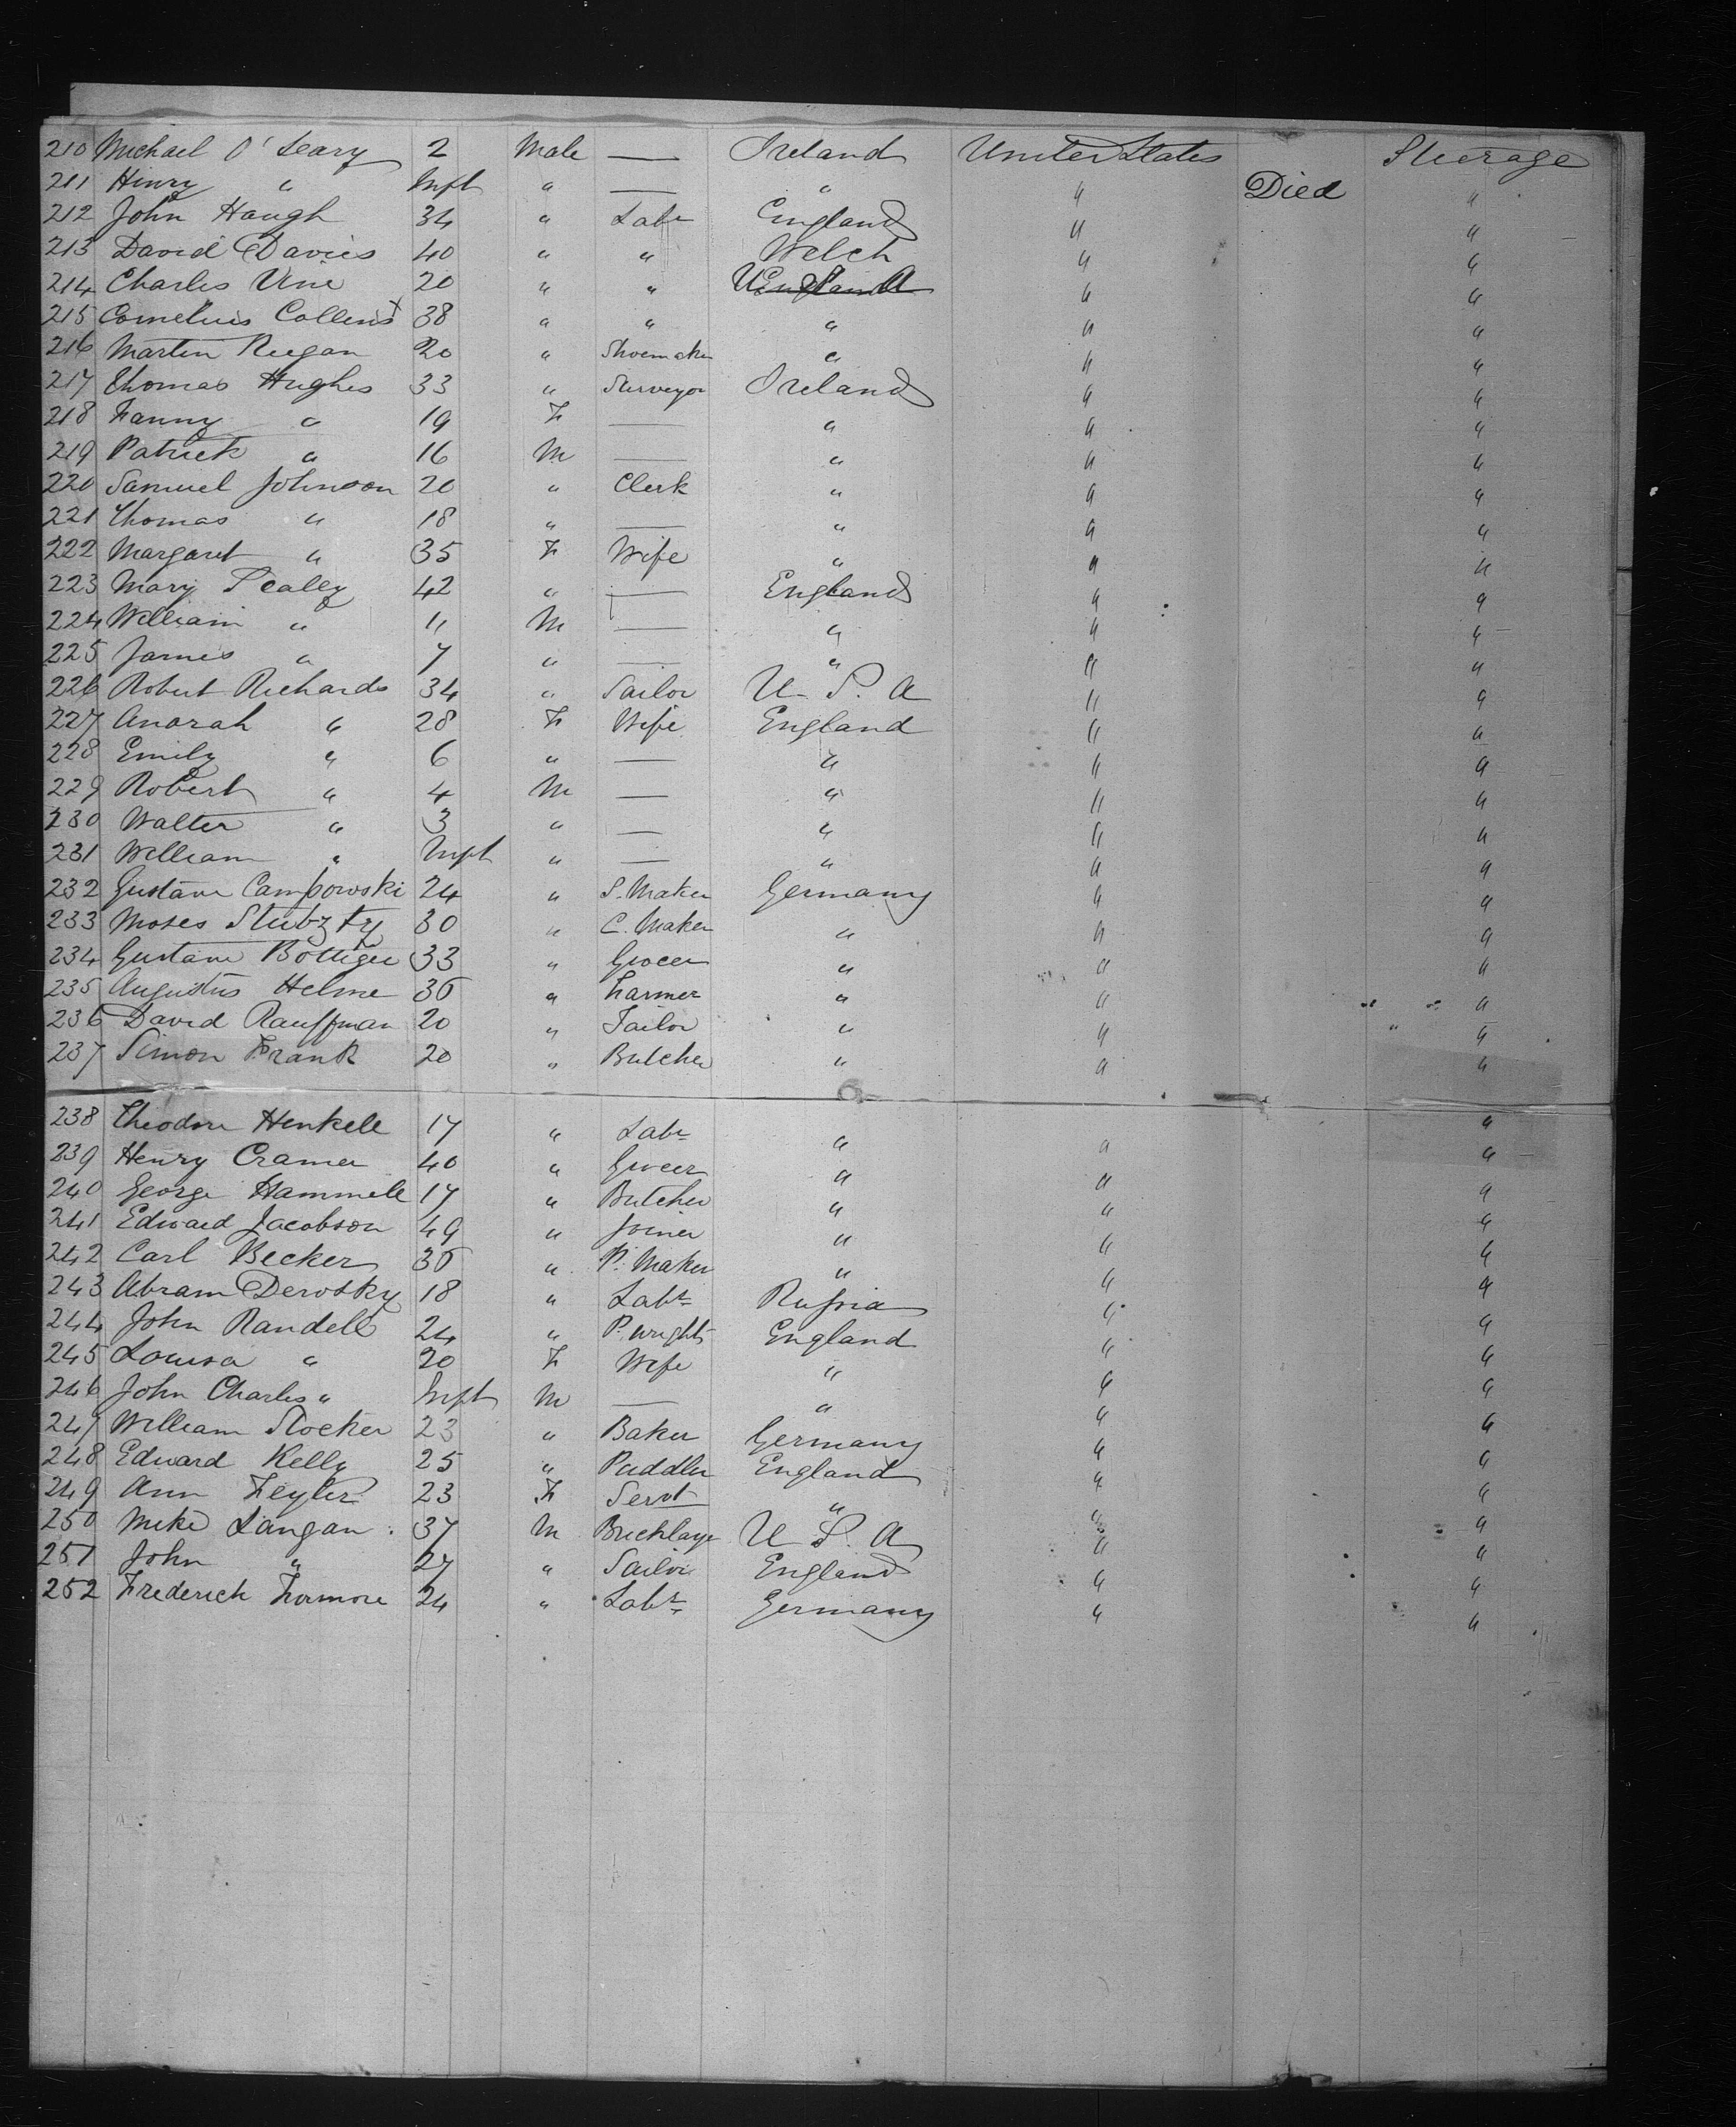 210 Michael O'Leary 2 Male — Ireland United States Steerage
211 Henry " Inft " — " " Died "
212 John Haugh 34 " Labr England " "
213 David Davies 40 " " Welch " "
214 Charles Vine 20 " " " "
215 Cornelius Collins 38 " " " " "
216 Martin Reegan 20 " Shoemaker " " "
217 Thomas Hughes 33 " Surveyor Ireland " "
218 Fanny " 19 F — " " "
219 Patrick " 16 M — " " "
220 Samuel Johnson 20 " Clerk " " "
221 Thomas " 18 " — " " "
222 Margaret " 35 F Wife " " "
223 Mary Scaley 42 " — England " "
224 William " 11 M — " " "
225 James " 7 " — " " "
226 Robert Richards 34 " Sailor U. S. A " "
227 Anorah " 28 F Wife England " "
228 Emily " 6 " — " " "
229 Robert " 4 M — " " "
230 Walter " 3 " — " " "
231 William " Inft " — " " "
232 Gustave Campowski 24 " S. Maker Germany " "
233 Moses 30 " C. Maker " " "
234 Gustave Bottiger 33 " Grocer " " "
235 Augustus Helme 36 " Farmer " " "
236 David Kauffman 20 " Tailor " " "
237 Simon Frank 20 " Butcher " " "
6
238 Theodore Henkell 17 " Labr " " "
239 Henry Cramer 40 " Grocer " " "
240 George Hammell 17 " Butcher " " "
241 Edward Jacobson 49 " Joiner " " "
242 Carl Becker 36 " P. Maker " " "
243 Abram Derosky 18 " Labr Russia " "
244 John Randell 24 " P. wright England " "
245 Louisa " 20 F Wife " " "
246 John Charles " Inft M — " " "
247 William Stocker 23 " Baker Germany " "
248 Edward Kelly 25 " Puddler England " "
249 Ann Feyler 23 F Servt " " "
250 Mike Langan 37 M Bricklayr U. S. A " "
251 John " 27 " Sailor England " "
252 Frederick Formore 24 " Labr Germany " "